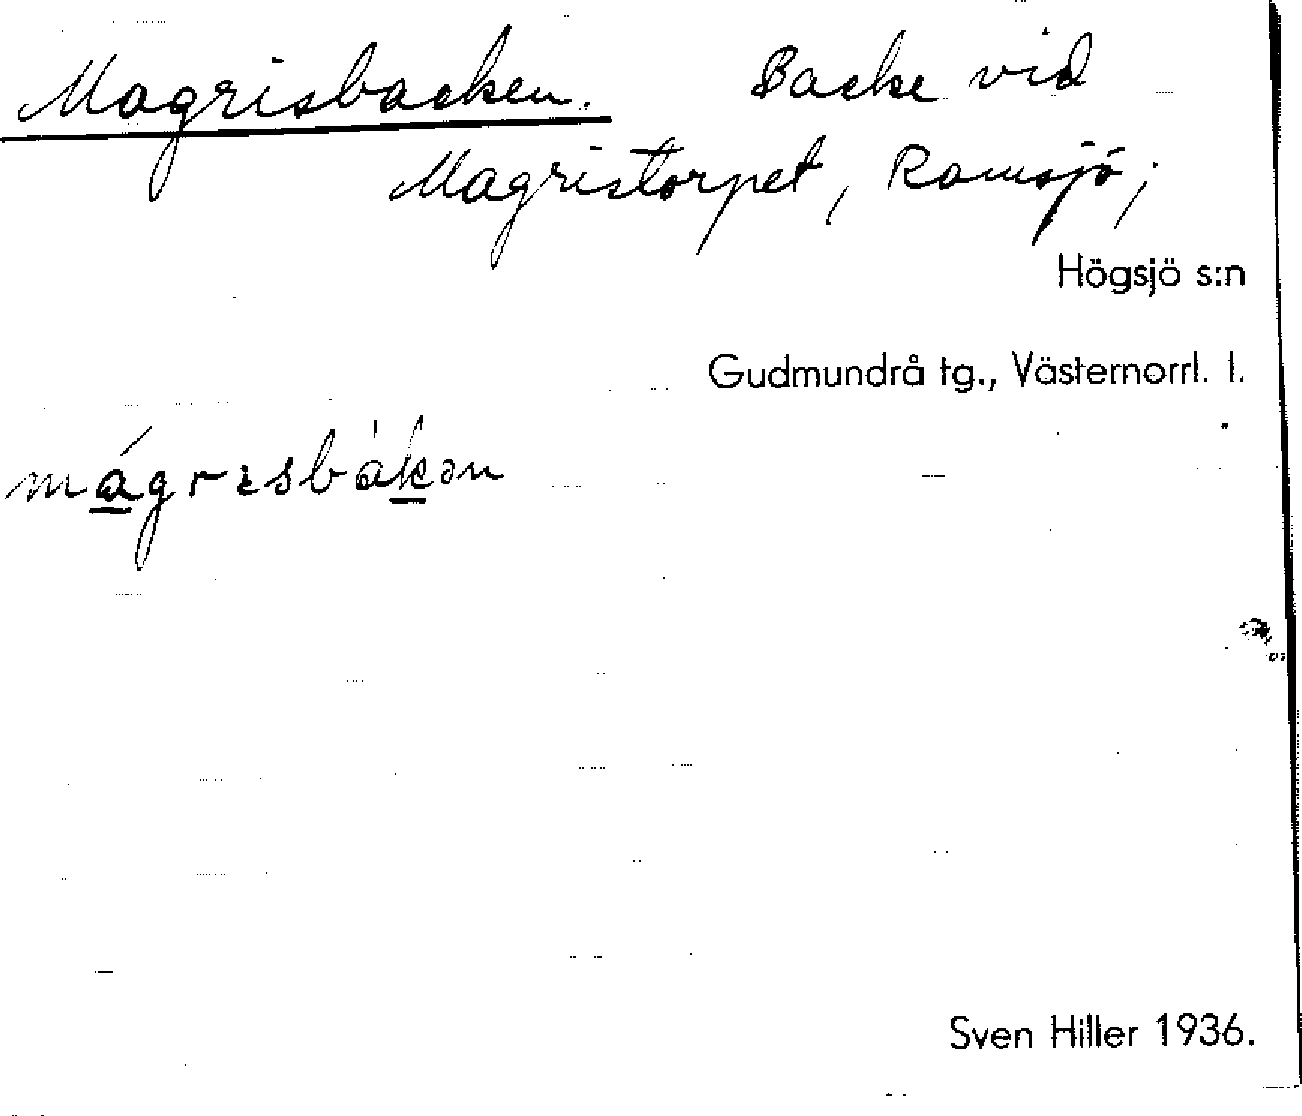 Magrisbacken. Backe vid
Magristorpet, Ramsjö;
Högsjö s:n
Gudmundrå tg., Västernorrl. l.
mágrɩsbákən
Sven Hiller 1936.